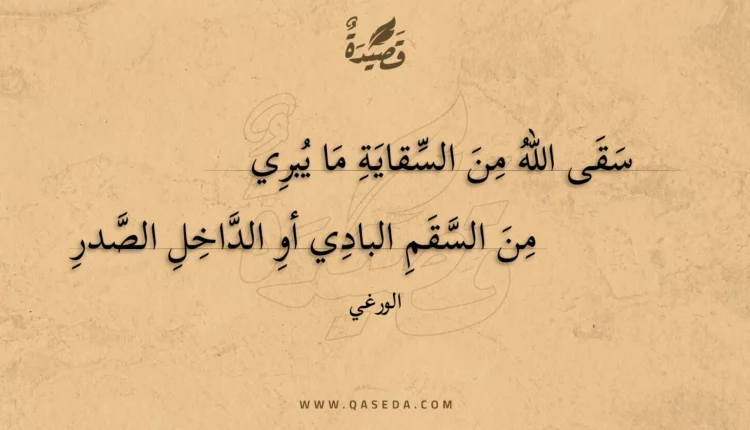 قَصِيدَةٌ
سَقَى اللهُ مِنَ السِّقايَةِ مَا يُبرِي
مِنَ السَّقَمِ البادِي أوِ الدَّاخِلِ الصَّدرِ
الورغي
WWW.QASEDA.COM